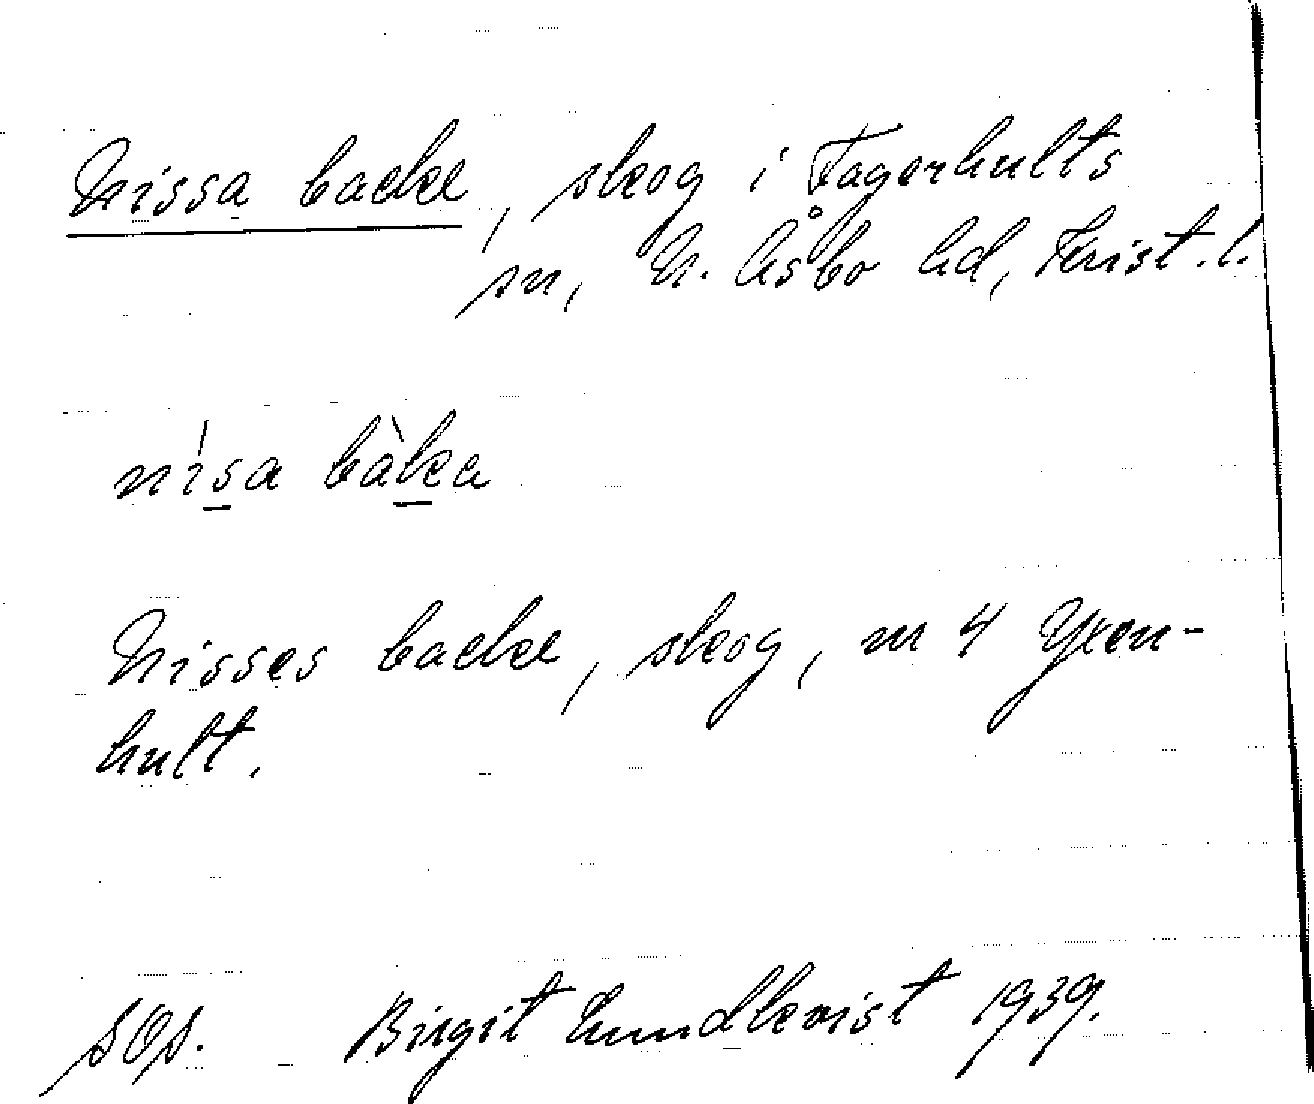 Nissa backe, skog i Fagerhults
sn, N. Åsbo hd, Krist. l.
nísa bàka
Nisses backe, skog, m 4 Yxen-
hult.
SOS. Birgit Lundkvist 1939.